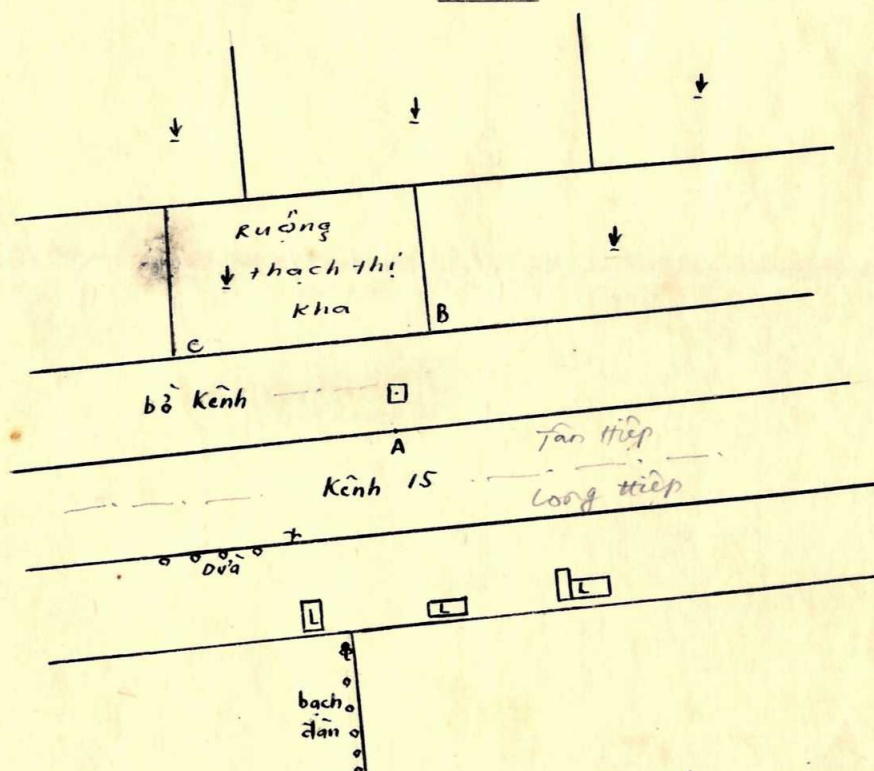 Ruộng
thạch thị
kha
B
C
bờ Kênh
A
Tân Hiệp
Kênh 15
Long Hiệp
Dừa
L
L
L
bạch
đàn